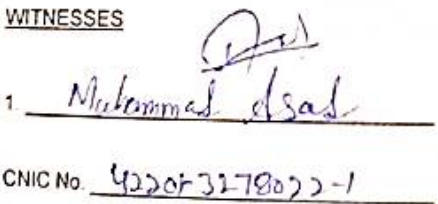 WITNESSES
1. Muhammad Asad
CNIC No. 42201-3278022-1